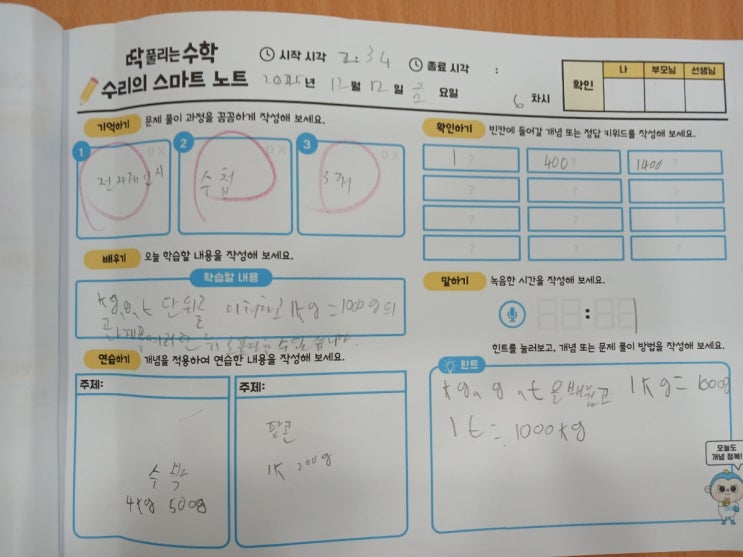 딱 풀리는 수학
수리의 스마트 노트
시작 시각 2:34
종료 시각 :
2025년 12월 12일 금요일
6 차시
확인 나 부모님 선생님
기억하기 문제 풀이 과정을 꼼꼼하게 작성해 보세요.
1 OX
전자레인지
2 OX
수첩
3 OX
3, 저
확인하기 빈칸에 들어갈 개념 또는 정답 키워드를 작성해 보세요.
1 400 1400
? ? ?
? ? ?
? ? ?
배우기 오늘 학습할 내용을 작성해 보세요.
학습할 내용
kg, g, t 단위를 1kg=1000g의
수 있습니다.
말하기 녹음한 시간을 작성해 보세요.
:
연습하기 개념을 적용하여 연습한 내용을 작성해 보세요.
주제:
수박
4kg 500g
주제:
팝콘
1k 200g
힌트를 눌러보고, 개념 또는 문제 풀이 방법을 작성해 보세요.
힌트
kg, g, t을 배웠고 1kg=1000g
1t=1000kg
오늘도
개념 정복!